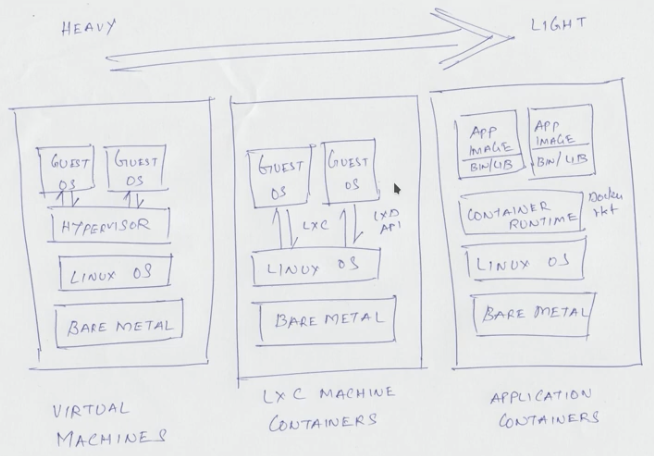 HEAVY
LIGHT
GUEST
OS
GUEST
OS
HYPERVISOR
LINUX OS
BARE METAL
VIRTUAL
MACHINES
GUEST
OS
GUEST
OS
LXC
LXD
API
LINUX OS
BARE METAL
LXC MACHINE
CONTAINERS
APP
IMAGE
BIN/LIB
APP
IMAGE
BIN/LIB
CONTAINER
RUNTIME
Docker
rkt
LINUX OS
BARE METAL
APPLICATION
CONTAINERS